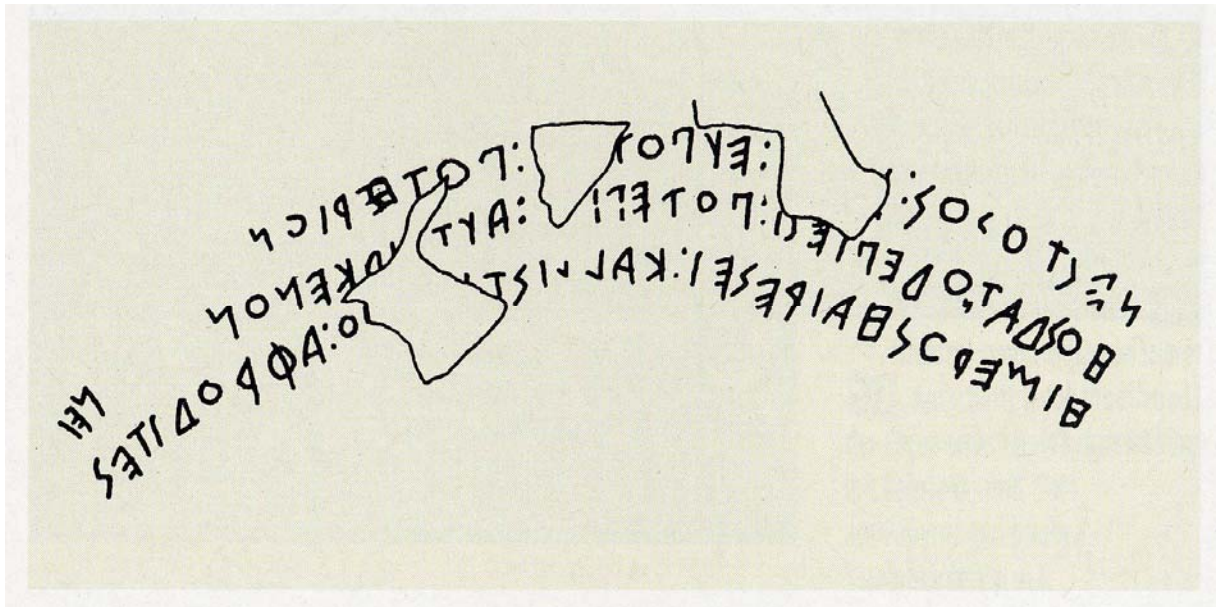 ΝΕΣΤΟΡΟΣ: : ΕΥΠΟΤ : ΠΟΤΕΡΙΟΝ
ΗΟΣΔΑΝΤΟΔΕΠΙΕΣΙ: ΠΟΤΕΡΙ : ΑΥΤ ΚΕΝΟΝ
ΗΙΜΕΡΟΣΗΑΙΡΕΣΕΙ: ΚΑΛΛΙΣΤ Ο: ΑΦΡΟΔΙΤΕΣ